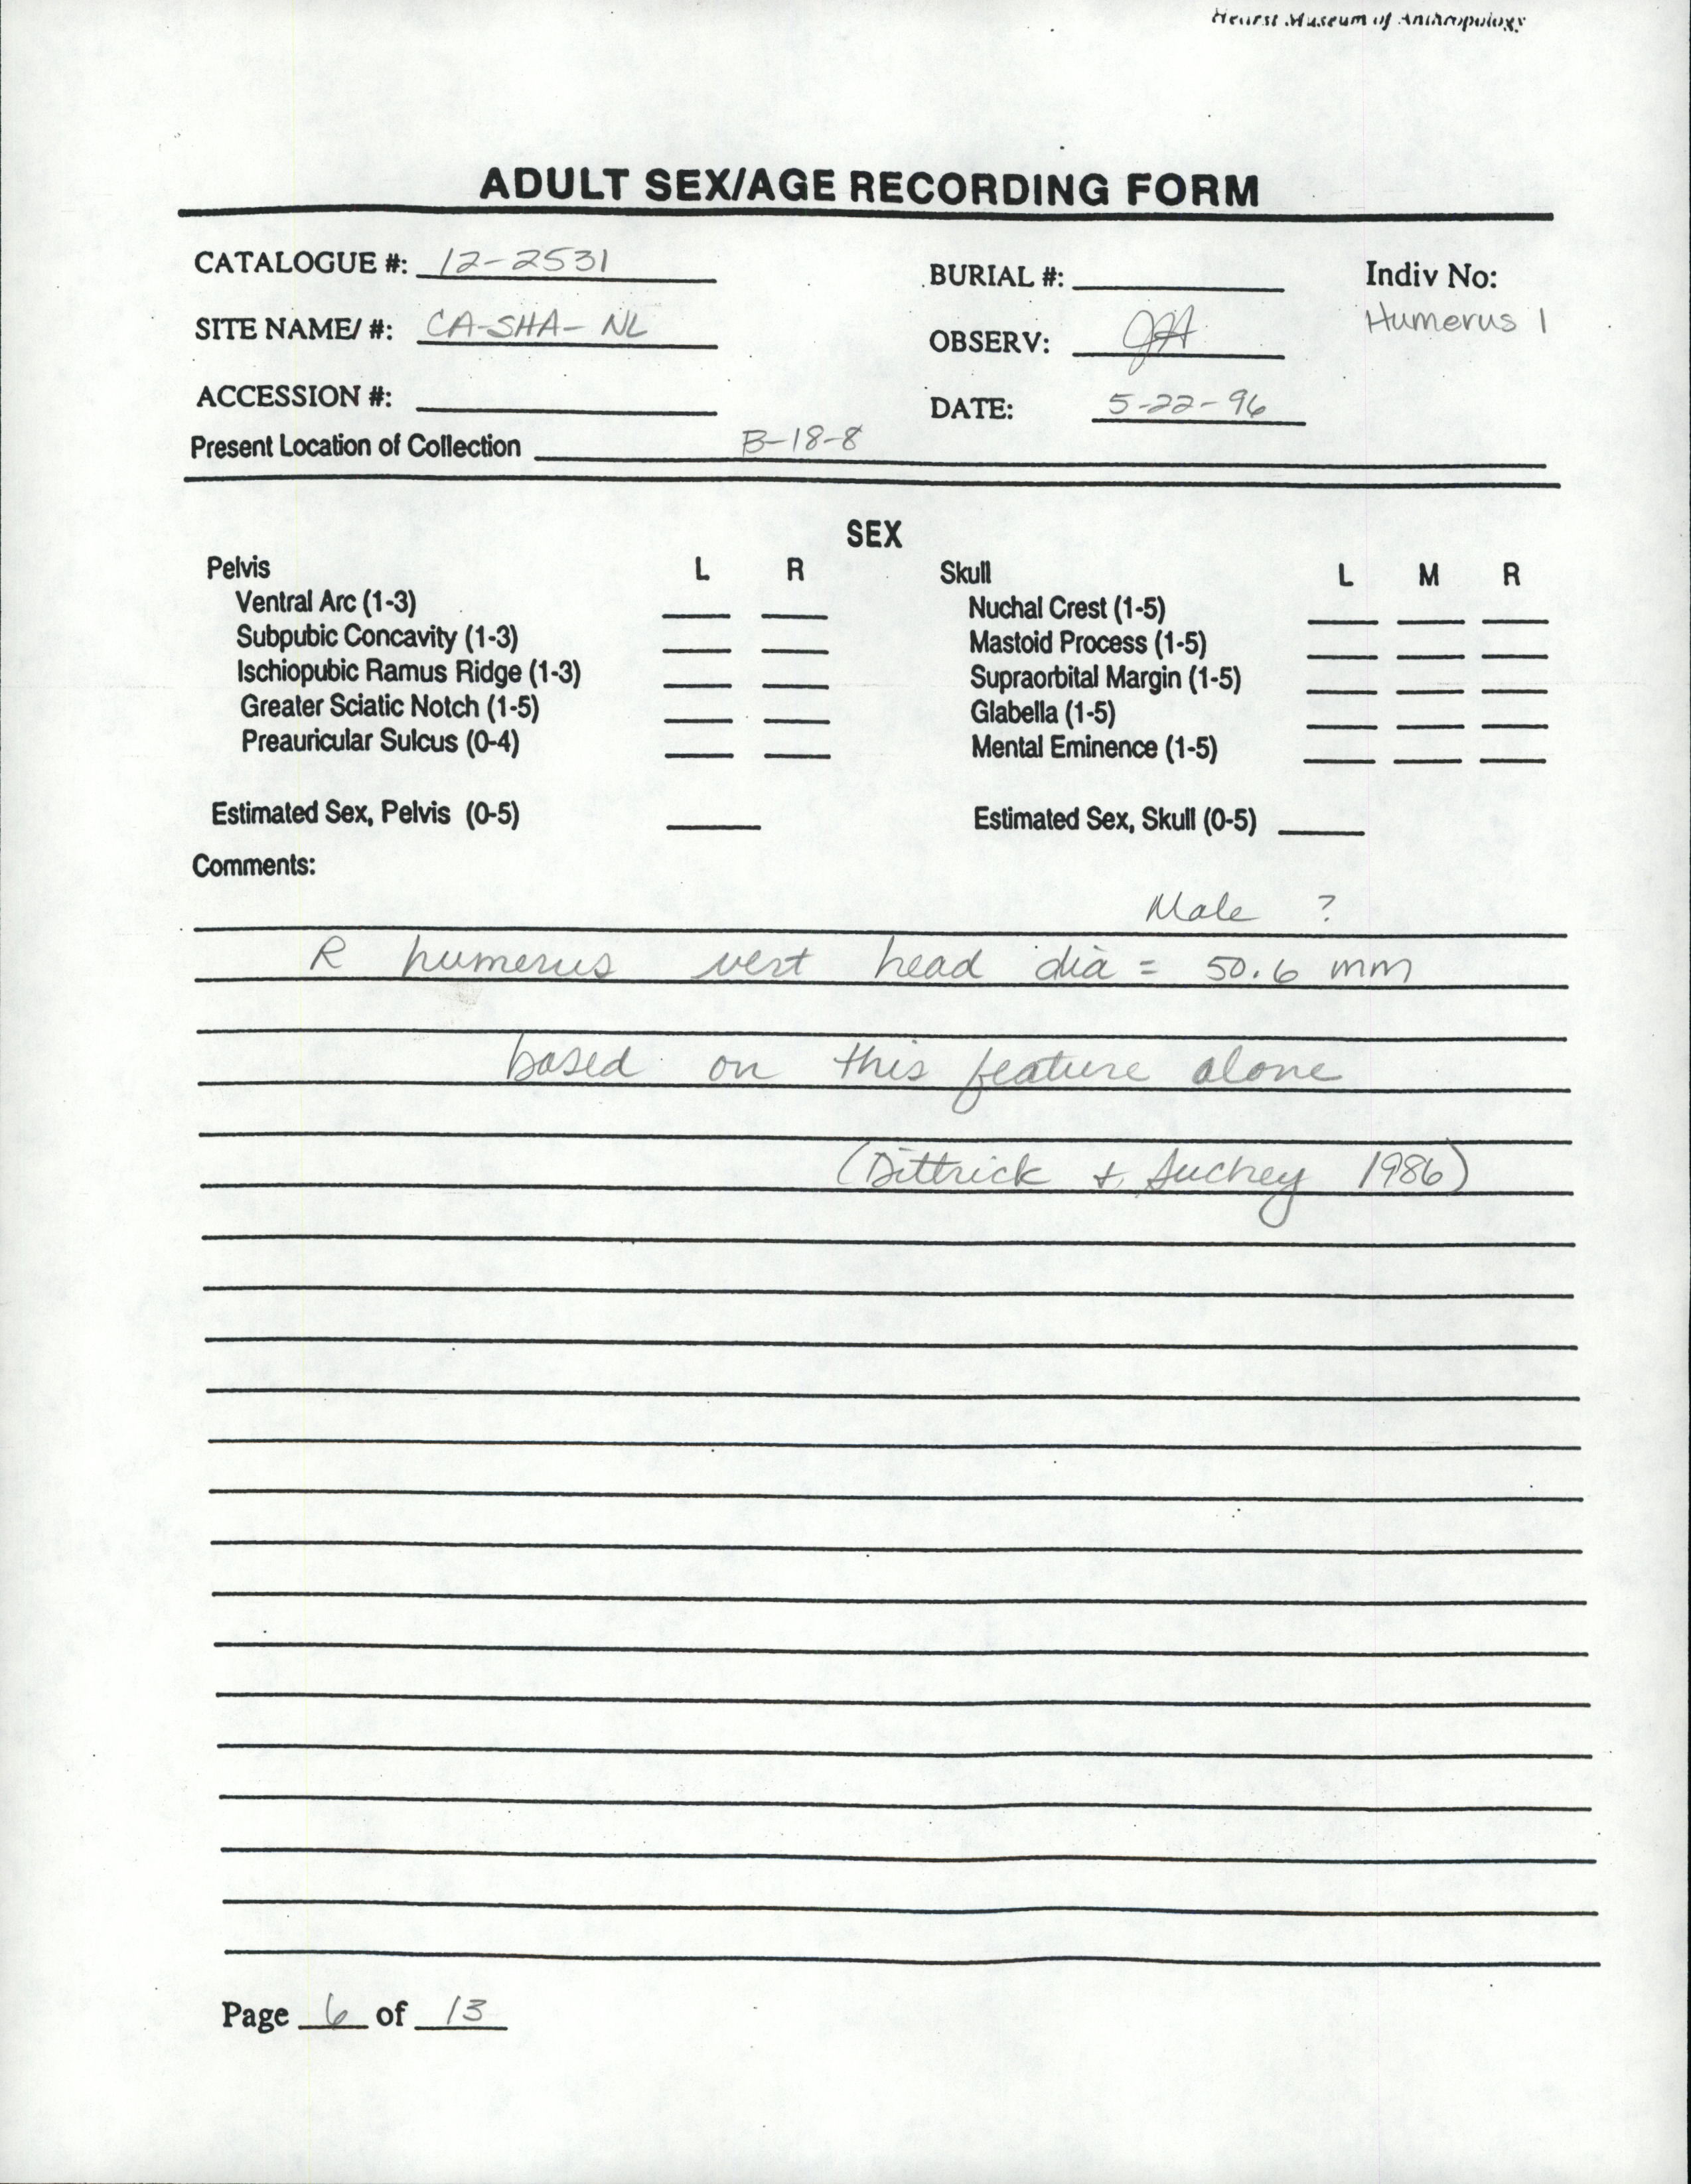 Hearst Museum of Anthropology
ADULT SEX/AGE RECORDING FORM
CATALOGUE #: 12-2531
BURIAL #:
Indiv No:
SITE NAME/ #: CA-SHA-NL
OBSERV: JA
Humerus 1
ACCESSION #:
DATE: 5-22-96
Present Location of Collection B-18-8
SEX
Pelvis L R
Skull L M R
Ventral Arc (1-3)
Nuchal Crest (1-5)
Subpubic Concavity (1-3)
Mastoid Process (1-5)
Ischiopubic Ramus Ridge (1-3)
Supraorbital Margin (1-5)
Greater Sciatic Notch (1-5)
Glabella (1-5)
Preauricular Sulcus (0-4)
Mental Eminence (1-5)
Estimated Sex, Pelvis (0-5)
Estimated Sex, Skull (0-5)
Comments:
Male ?
R humerus vert head dia = 50.6 mm
based on this feature alone
(Dittrick + Suchey 1986)
Page 6 of 13